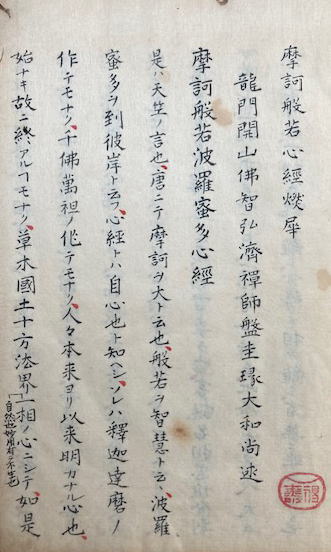 摩訶般若心經燬犀
龍門開山佛智弘濟禪師盤圭琢大和尚述
摩訶般若波羅蜜多心經
是ハ天竺ノ言也、唐ニテ摩訶ヲ大ト云也、般若ヲ智慧ト云、波羅
蜜多ヲ到彼岸ト云フ、心経トハ自心也ト知ヘシ、ソレハ釋迦達磨ノ
作テモナク、千佛萬祖ノ作テモナク、人々本来ヨリ以来明カナル心也、
始ナキ故ニ終アルコモナク、草木國土十方法界一相ノ心ニシテ、如是